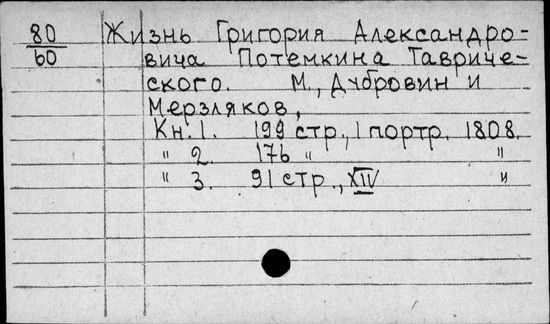 80 Жизнь Григория Александро-
60 вича Потемкина Тавриче-
ского. М., Дубровин и
Мерзляков,
Кн. 1. 199 стр., 1 портр. 1808.
" 2. 176 " "
" 3. 91 стр., XIV "